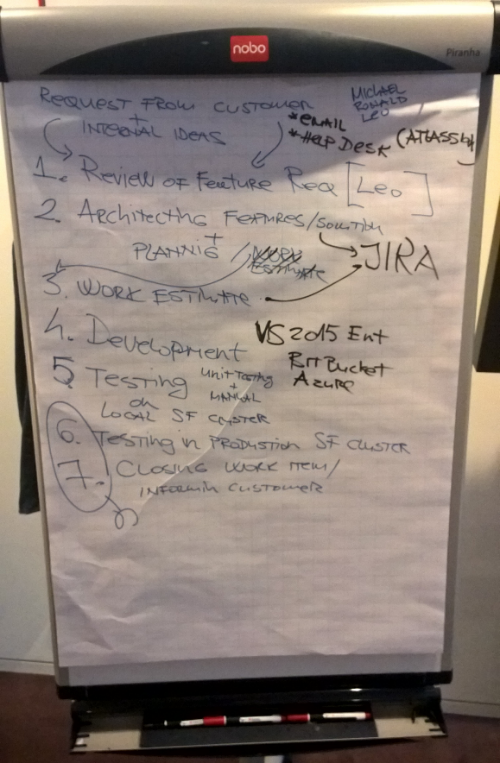 nobo
Piranha
REQUEST FROM CUSTOMER
+
INTERNAL IDEAS
MICHAEL
RONALD
LEO
*EMAIL
*HELP DESK (ATLASSIAN)
1. Review of Feature Req [Leo]
2. Architecting Features/Solution
+
PLANNIG / WORK ESTIMATE
JIRA
3. WORK ESTIMATE
4. Development
VS 2015 Ent
BITBucket
Azure
5 Testing Unit Testing
+
MANUAL
on
LOCAL SF CLUSTER
6. Testing in PRODUCTION SF CLUSTER
7. CLOSING WORK ITEM/
INFORMIN CUSTOMER